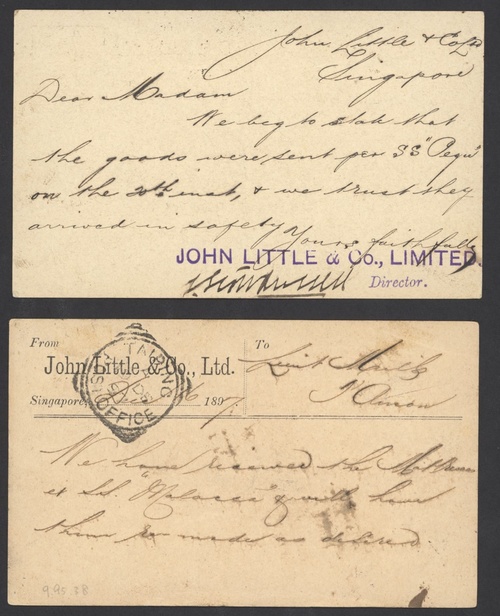 John Little & Co Ld
Singapore
Dear Madam
We beg to state that
the goods were sent per SS "Pegu"
on the 20th inst, & we trust they
arrived in safety
Yours faithfully
JOHN LITTLE & Co., LIMITED.
Director.
From
John Little & Co., Ltd.
Singapore, 1897
To
TAIPING
OFFICE
We have received the
ex S.S. "Malacca" & will have
them re made as desired
99538